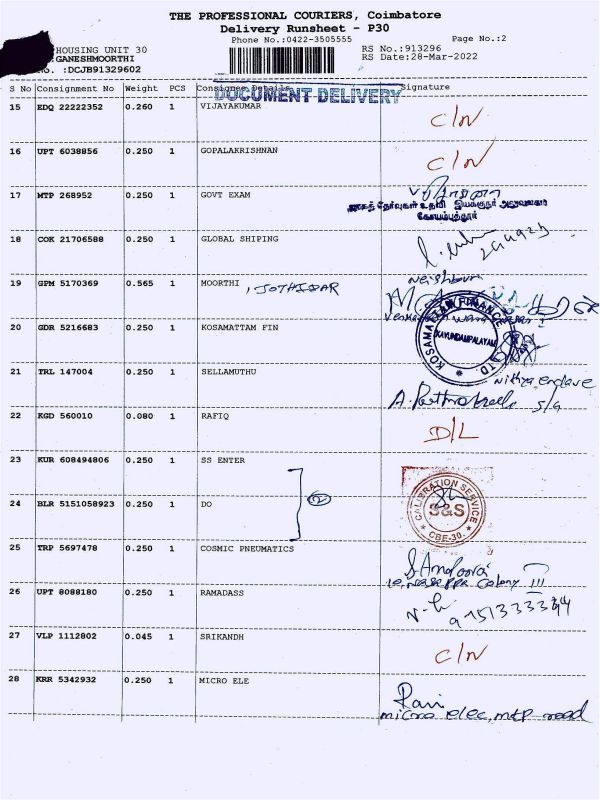 THE PROFESSIONAL COURIERS, Coimbatore
Delivery Runsheet - P30
Phone No.:0422-3505555
Page No.:2
HOUSING UNIT 30
GANESHMOORTHI
No. :DCJB91329602
RS No.:913296
RS Date:28-Mar-2022
S No Consignment No Weight PCS Consignee Details Signature
DOCUMENT DELIVERY
15 EDQ 22222352 0.260 1 VIJAYAKUMAR C/N
16 UPT 6038856 0.250 1 GOPALAKRISHNAN C/N
17 MTP 268952 0.250 1 GOVT EXAM
அரசுத் தேர்வுகள் உதவி இயக்குநர் அலுவலகம்
கோயம்புத்தூர்
18 COK 21706588 0.250 1 GLOBAL SHIPING
19 GPM 5170369 0.565 1 MOORTHI , JOTHIDAR
Neighbour
20 GDR 5216683 0.250 1 KOSAMATTAM FIN
KOSAMATTAM FINANCE LTD.
KAVUNDAMPALAYAM
21 TRL 147004 0.250 1 SELLAMUTHU
Nithya enclave
S/G
22 KGD 560010 0.080 1 RAFIQ D/L
23 KUR 608494806 0.250 1 SS ENTER
24 BLR 5151058923 0.250 1 DO 2
CALIBRATION SERVICE
S&S
CBE-30.
25 TRP 5697478 0.250 1 COSMIC PNEUMATICS
Colony III
26 UPT 8088180 0.250 1 RAMADASS
27 VLP 1112802 0.045 1 SRIKANDH C/N
28 KRR 5342932 0.250 1 MICRO ELE
Ravi
micro elec, mtp road